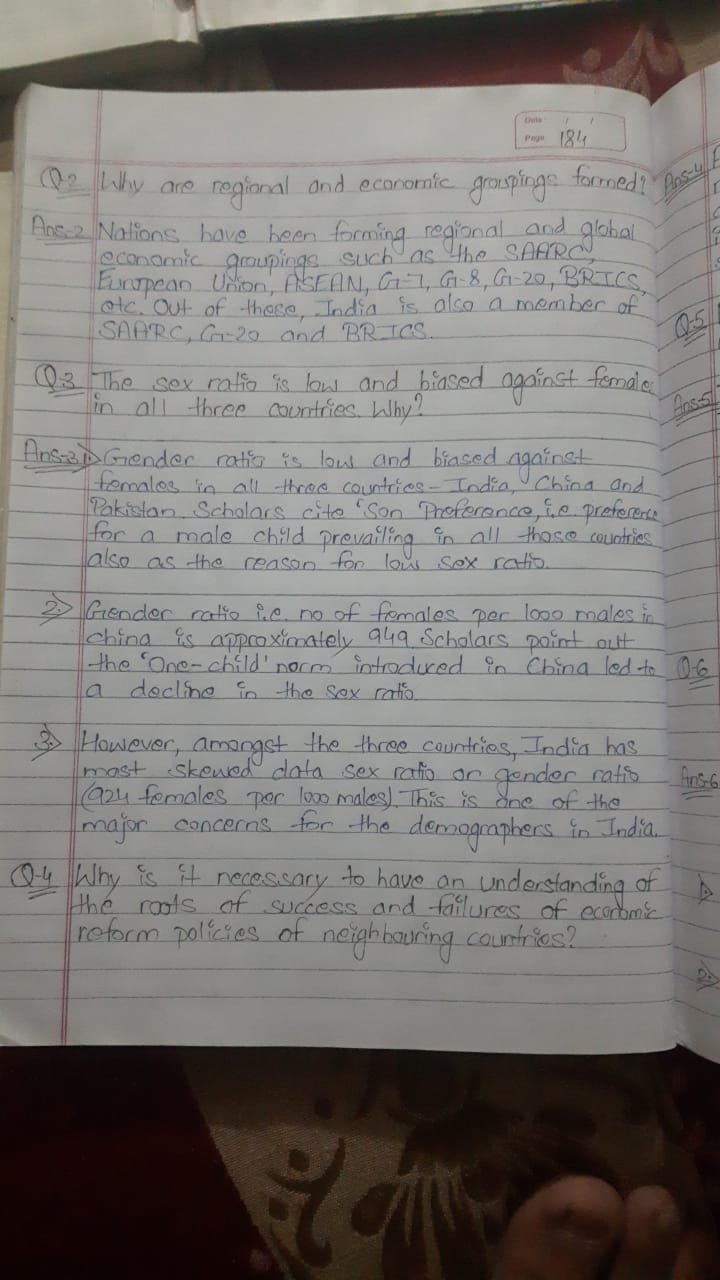 Date / /
Page 184
Q.2 Why are regional and economic groupings formed?
Ans-2 Nations have been forming regional and global
economic groupings such as the SAARC,
European Union, ASEAN, G-7, G-8, G-20, BRICS,
etc. Out of these, India is also a member of
SAARC, G-20 and BRICS.
Q.3 The sex ratio is low and biased against females
in all three countries. Why?
Ans-3 1) Gender ratio is low and biased against
females in all three countries - India, China and
Pakistan. Scholars cite 'Son Preference, i.e. preference
for a male child prevailing in all those countries
also as the reason for low sex ratio.
2) Gender ratio i.e. no of females per 1000 males in
china is approximately 949 Scholars point out
the 'One-child' norm introduced in China led to
a decline in the sex ratio.
3) However, amongst the three countries, India has
most skewed data sex ratio or gender ratio
(924 females per 1000 males). This is one of the
major concerns for the demographers in India.
Q-4 Why is it necessary to have an understanding of
the roots of success and failures of economic
reform policies of neighbouring countries?
Ans-4
Q-5
Ans-5
Q-6
Ans-6
1)
2)